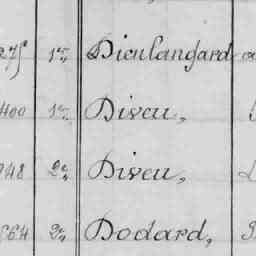 1re, Dieulangard
400 1re, Diveu,
948 2e, Diveu,
564 2e, Dodard,